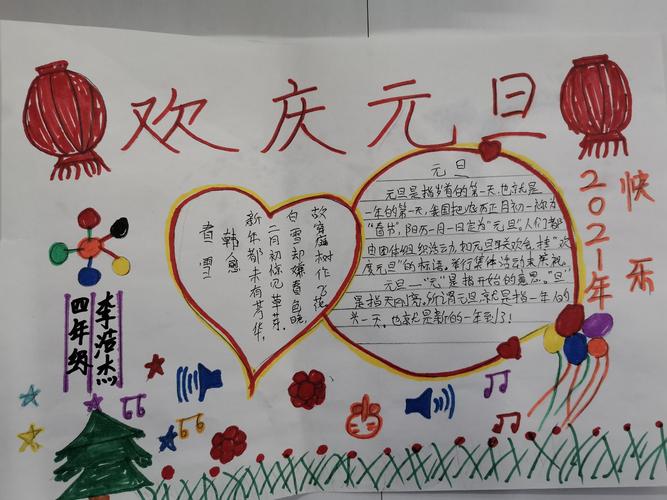 欢庆元旦
快乐
2021年
元旦
元旦是指岁首的第一天,也就是
一年的第一天,我国把农历正月初一称为
“春节”,阳历一月一日定为“元旦”,人们都
由团体组织活动,如元旦联欢会,挂“欢
度元旦”的标语,举行集体活动来庆祝。
元旦一“元”是指开始的意思。“旦”
是指天明时。所谓元旦就是指一年的
第一天,也就是新的一年到了!
春雪
韩愈
新年都未有芳华,
二月初惊见草芽。
白雪却嫌春色晚,
故穿庭树作飞花。
四年级
李浩杰